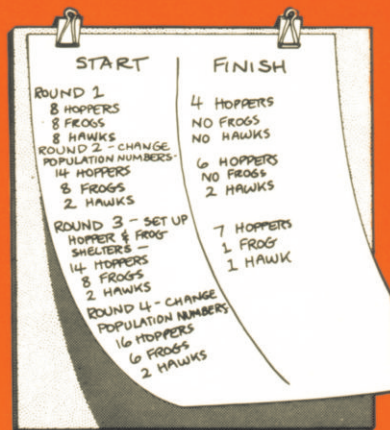 START
ROUND 1
8 HOPPERS
8 FROGS
8 HAWKS
ROUND 2 - CHANGE
POPULATION NUMBERS-
14 HOPPERS
8 FROGS
2 HAWKS
ROUND 3 - SET UP
HOPPER & FROG
SHELTERS -
14 HOPPERS
8 FROGS
2 HAWKS
ROUND 4 - CHANGE
POPULATION NUMBERS
16 HOPPERS
6 FROGS
2 HAWKS
FINISH
4 HOPPERS
NO FROGS
NO HAWKS
6 HOPPERS
NO FROGS
2 HAWKS
7 HOPPERS
1 FROG
1 HAWK